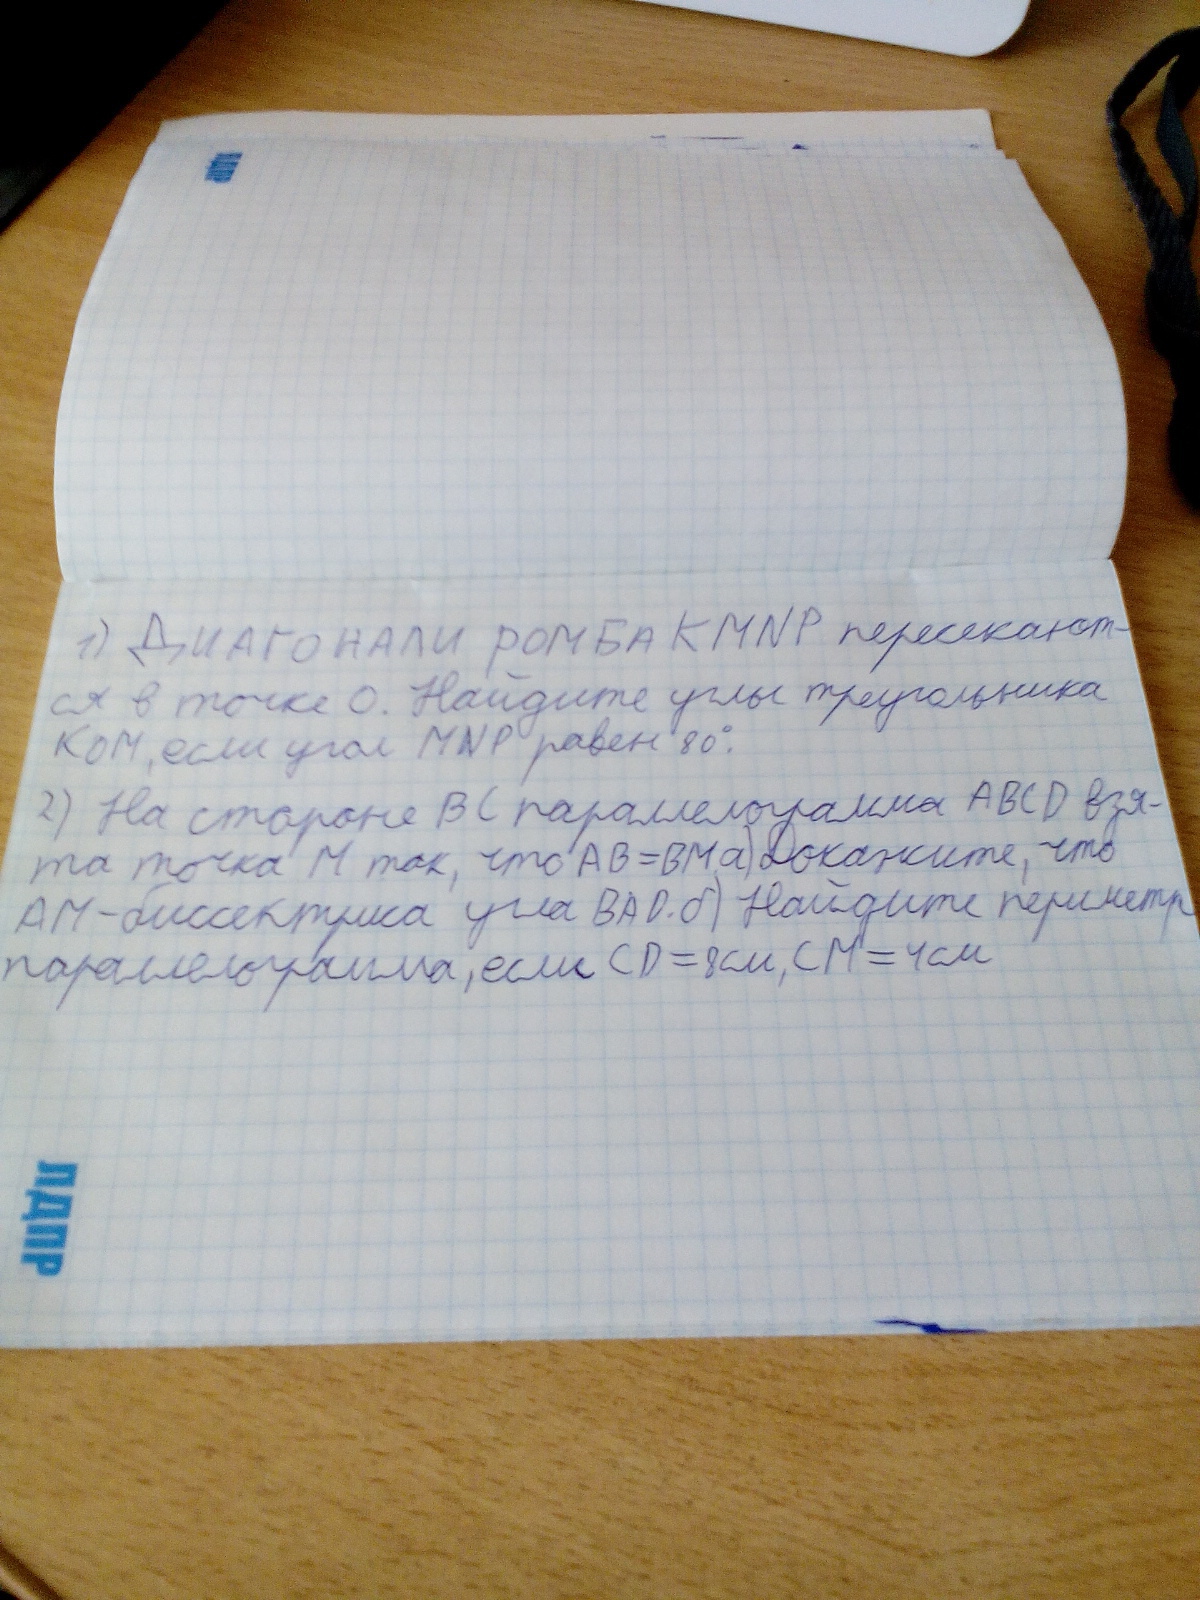 ЛДПР
1) ДИАГОНАЛИ РОМБА KMNP пересекают-
ся в точке О. Найдите углы треугольника
КОМ, если угол MNP равен 80°.
2) На стороне BC параллелограмма ABCD взя-
та точка М так, что AB=BM. а) Докажите, что
АМ-биссектриса угла BAD. б) Найдите периметр
параллелограмма, если CD=8см, CM=4см
ЛДПР